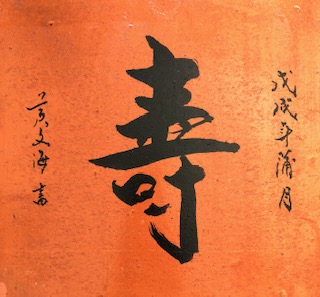 戊戌年蒲月
壽
黄文海書